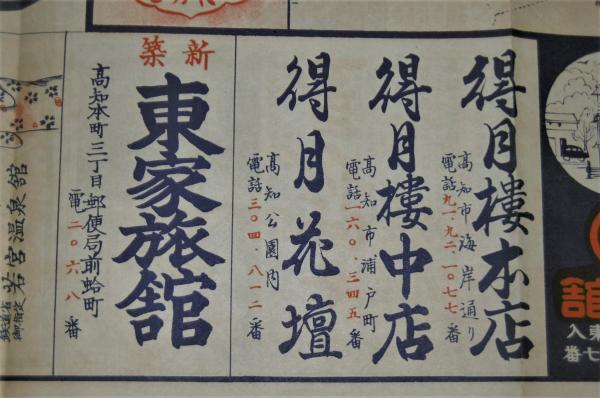 得月樓本店
高知市海岸通り
電話九一.九二.一〇七七番
得月樓中店
高知市浦戸町
電話一六〇.三四五番
得月花壇
高知公園内
電話三〇四.八一二番
新築
東家旅舘
高知本町三丁目郵便局前蛤町
電二〇六八番
若宮温泉舘
鉄道省
御指定
舘
東入
七番